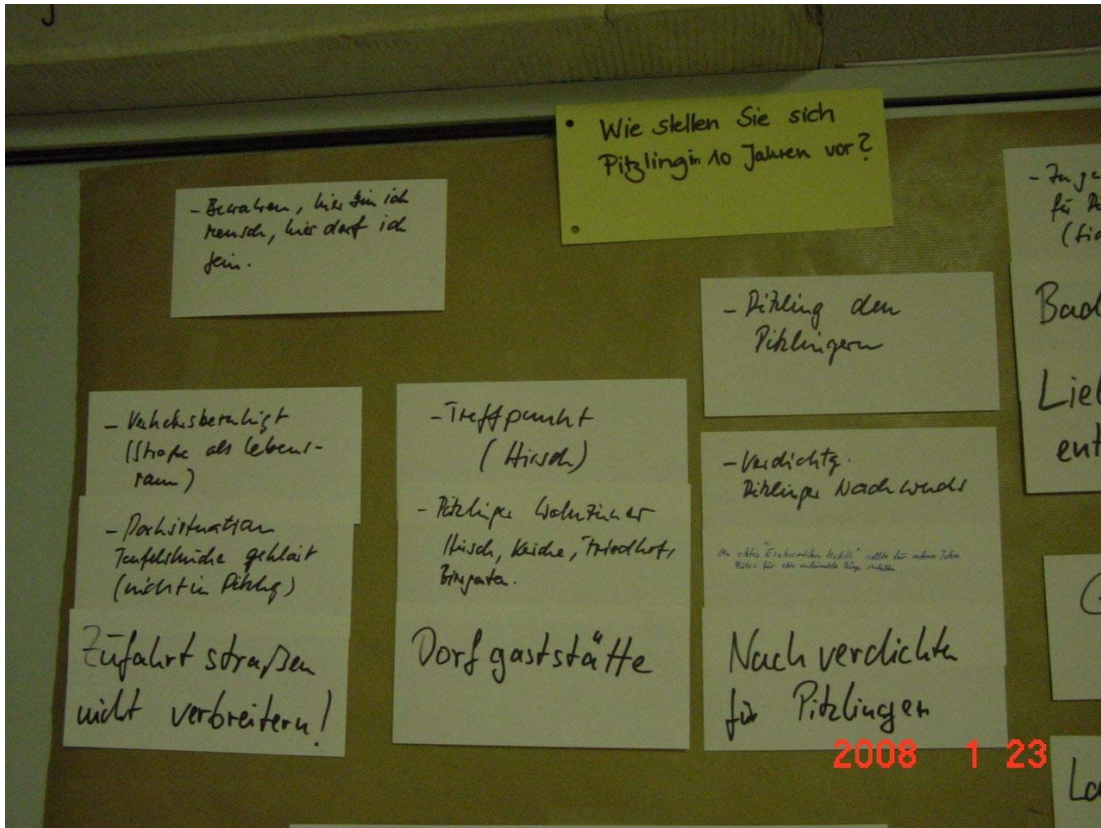 Wie stellen Sie sich
Pitzling in 10 Jahren vor?
- Bewahren, hier bin ich
Mensch, hier darf ich
sein.
- Verkehrsberuhigt
(Straße als Lebens-
raum)
- Parksituation
Teufelsküche geklärt
(nicht in Pitzlg)
Zufahrt straßen
nicht verbreitern!
- Treffpunkt
(Hirsch)
- Pitzlinger Wohnzimmer
Hirsch, Kirche, Friedhof,
Biergarten.
Dorfgaststätte
- Pitzling den
Pitzlingern
- Verdichtg.
Pitzlinger Nachwuchs
Nachverdichten
für Pitzlinger
Bad
Lie
ent
2008 1 23